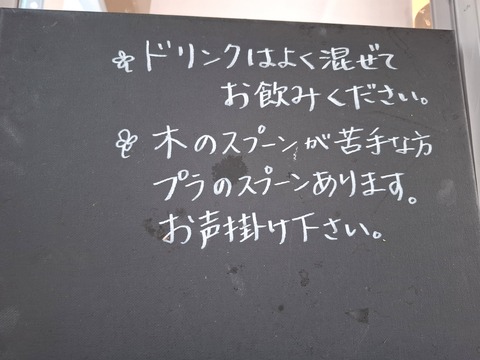 ドリンクはよく混ぜて
お飲みください。
木のスプーンが苦手な方
プラのスプーンあります。
お声掛け下さい。